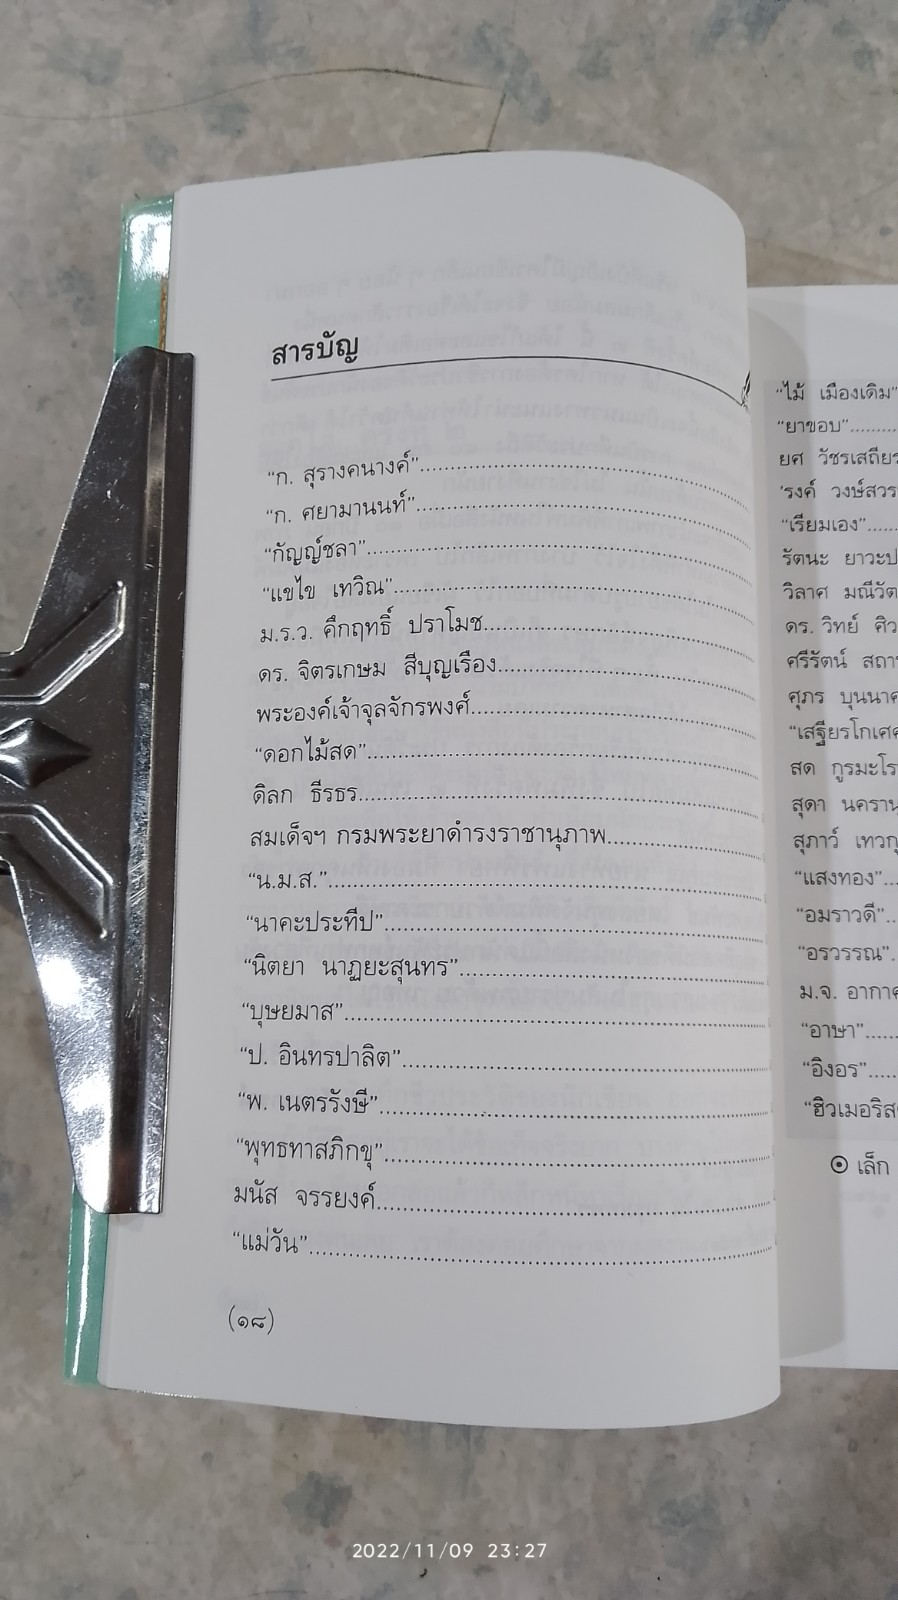 สารบัญ
“ก. สุรางคนางค์”
“ก. ศยามานนท์”
“กัญญ์ชลา”
“แขไข เทวิณ”
ม.ร.ว. คึกฤทธิ์ ปราโมช
ดร. จิตรเกษม สีบุญเรือง
พระองค์เจ้าจุลจักรพงศ์
“ดอกไม้สด”
ดิลก ธีรธร
สมเด็จฯ กรมพระยาดำรงราชานุภาพ
“น.ม.ส.”
“นาคะประทีป”
“นิตยา นาฏยะสุนทร”
“บุษยมาส”
“ป. อินทรปาลิต”
“พ. เนตรรังษี”
“พุทธทาสภิกขุ”
มนัส จรรยงค์
“แม่วัน”
(๑๘)
“ไม้ เมืองเดิม”
“ยาขอบ”
ยศ
’รงค์
“เรียมเอง”
รัตนะ
วิลาศ
ดร. วิทย์
ศรีรัตน์
ศุภร
สด
สุดา
สุภาว์
“แสงทอง”
“อมราวดี”
“อรวรรณ”
ม.จ.
“อาษา”
“อิงอร”
เล็ก
2022/11/09 23:27